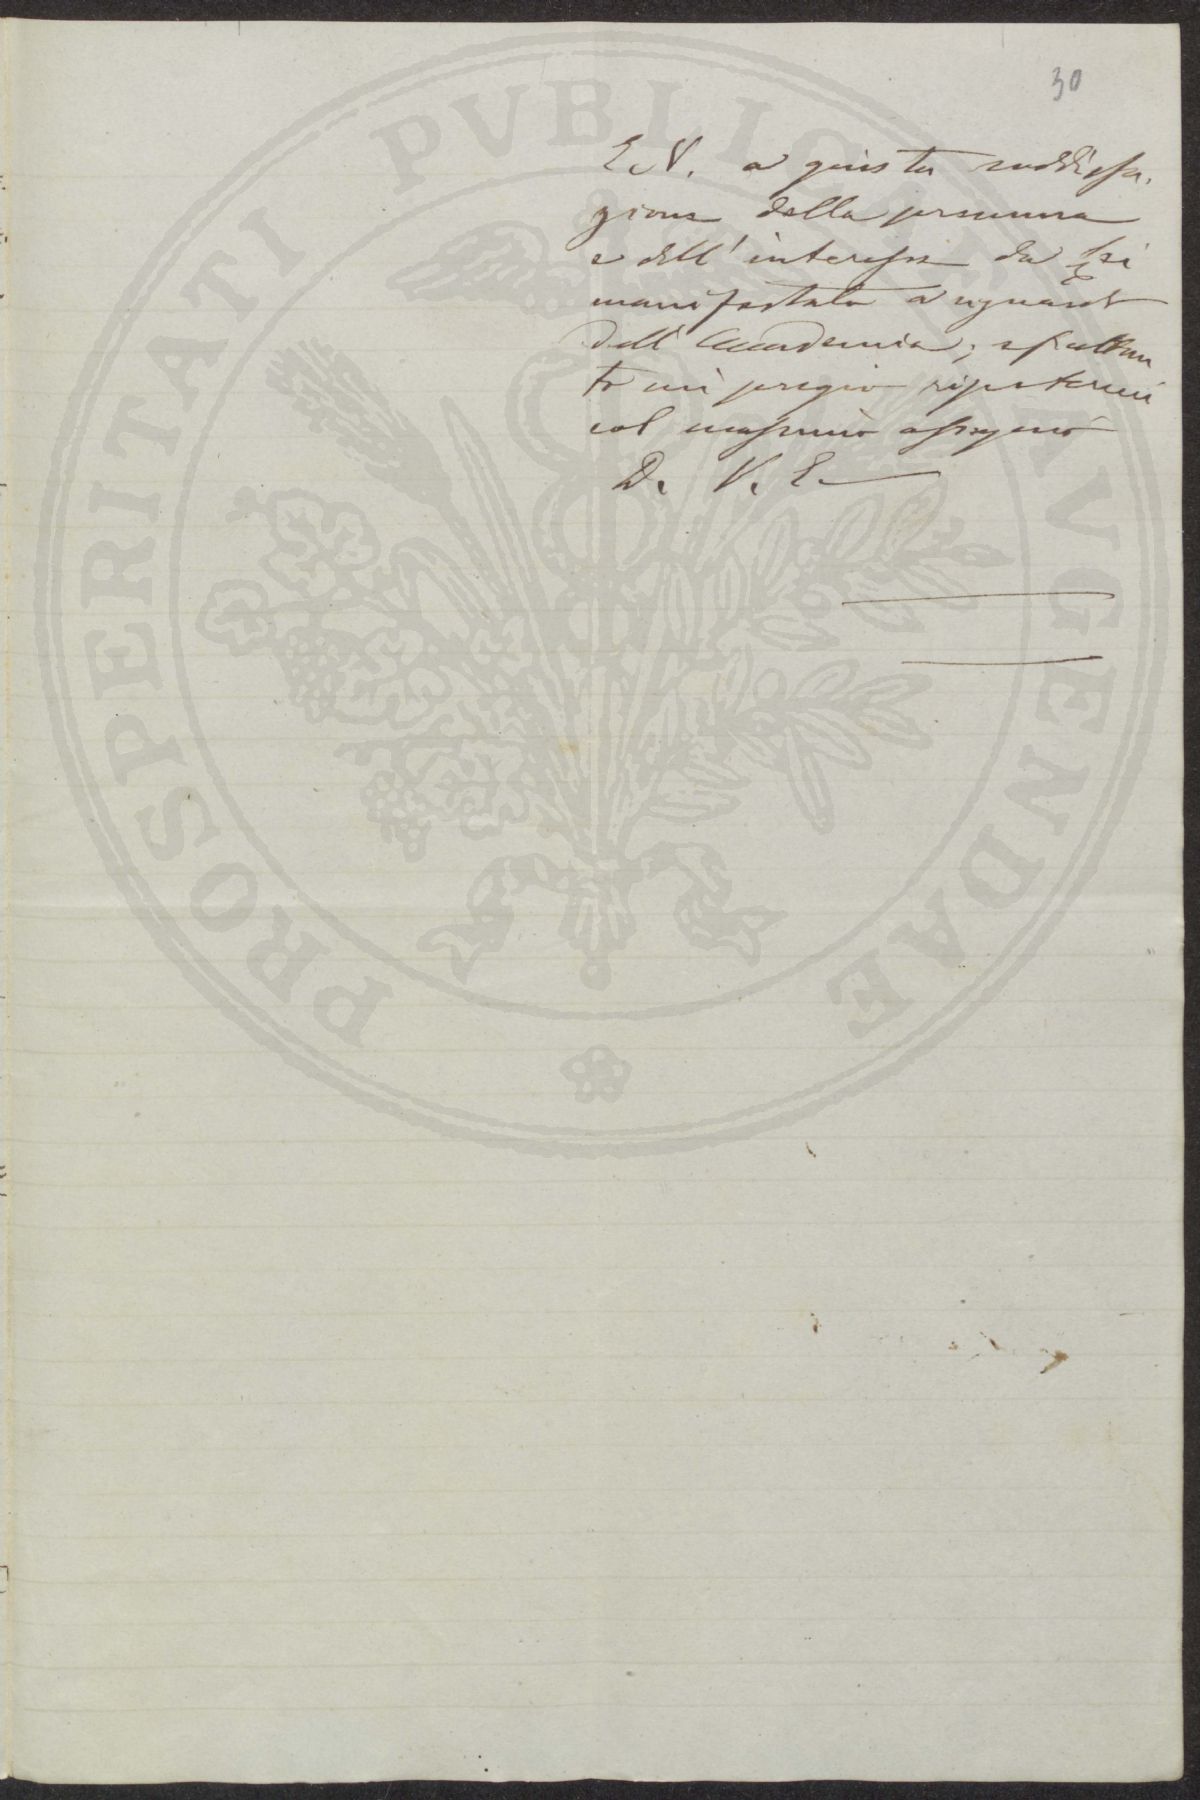 30
E. V. a giusta soddisfa-
zione della premura
e dell' interesse da Lei
manifestato a riguardo
dell' Accademia; e frattan
to mi pregio ripetermi
col massimo ossequio
D. V. E.
PROSPERITATI PVBLICAE AVGENDAE